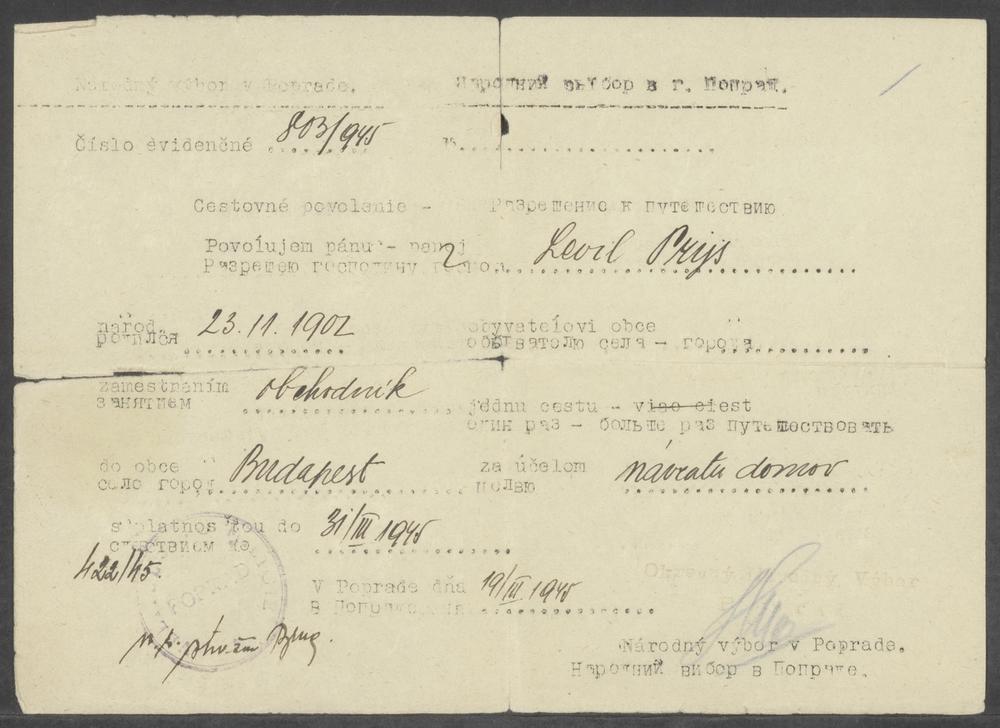 Národný výbor v Poprade. Народний выбор в г. Попрад.
Číslo evidenčné 803/1945
Cestovné povolenie - Разрешение к путешествию
Povoľujem pánu - panej Levil Prijs
Разрешею господину
národ. 23.11.1902 obyvateľovi obce
родился обывателю села - города
zamestnaním obchodník jednu cestu - viac ciest
занятием один раз - больше раз путешествовать
do obce Budapest za účelom návratu domov
село город целью
s platnosťou do 31/III 1945
422/45.
V Poprade dňa 19/III. 1945 Okresný Národný Výbor
в Попраде
POPRAD
Národný výbor v Poprade.
Народний вибор в Попраде.